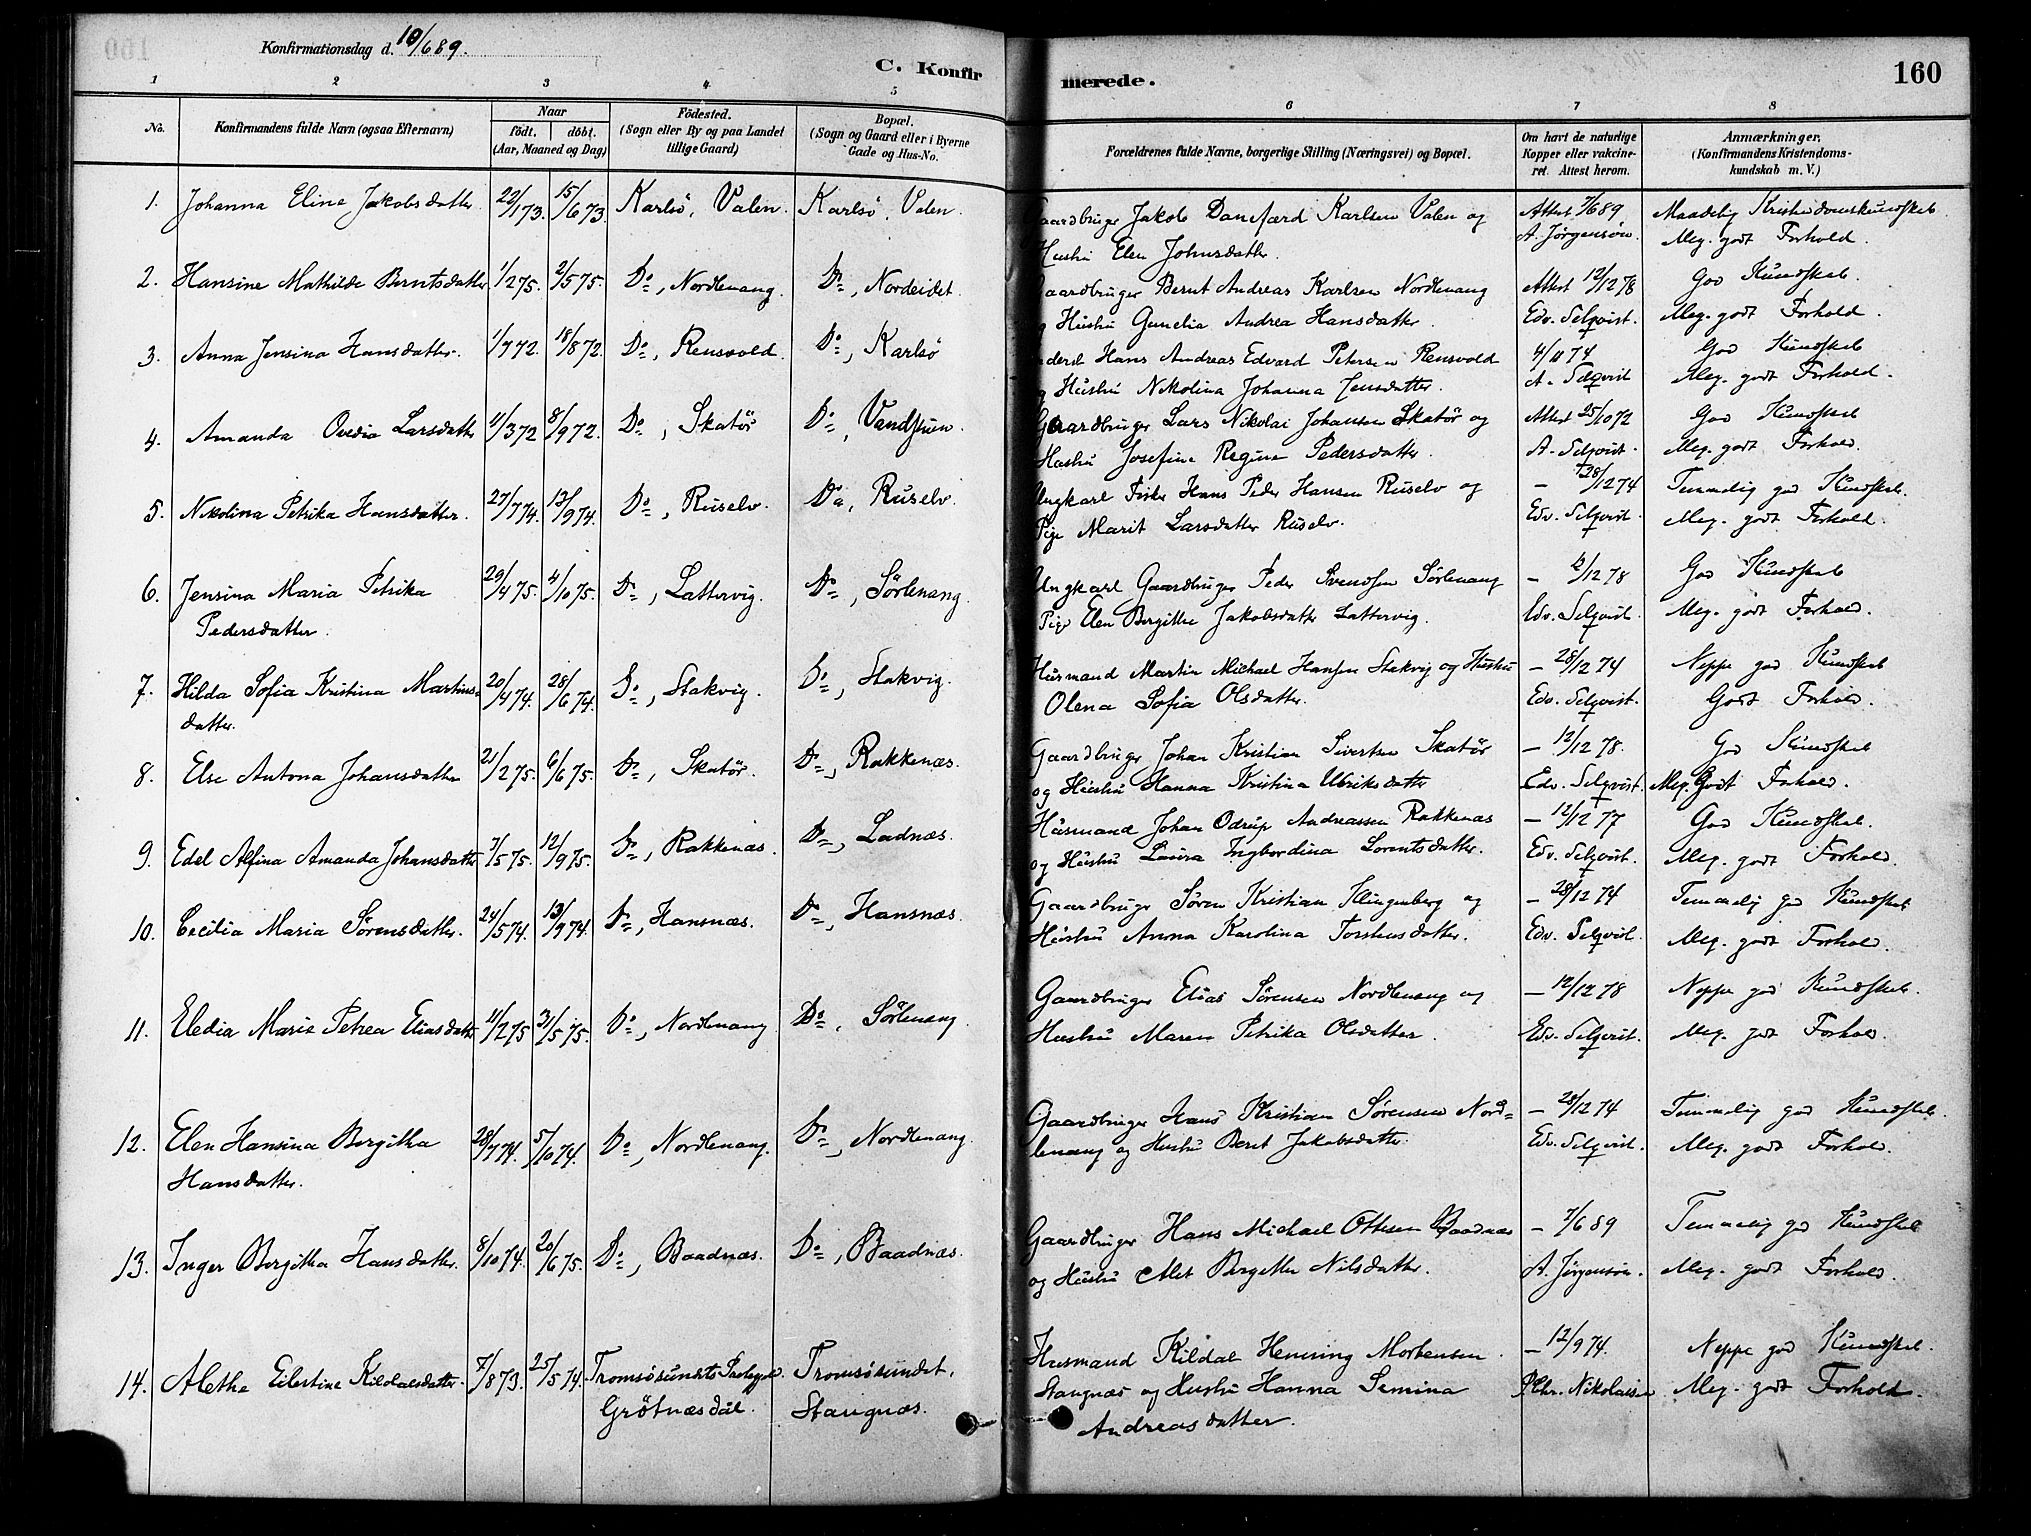 Konfirmationsdag d. 10/6 89.
C. Konfirmerede.
160
1 2 3 4 5 6 7 8
No.
Konfirmandens fulde Navn (ogsaa Efternavn)
Naar
födt. döbt.
(Aar, Maaned og Dag)
Födested.
(Sogn eller By og paa Landet
tillige Gaard)
Bopæl.
(Sogn og Gaard eller i Byerne
Gade og Hus-No.
Forældrenes fulde Navne, borgerlige Stilling (Næringsvei) og Bopæl.
Om havt de naturlige
Kopper eller vakcine-
ret. Attest herom.
Anmærkninger.
(Konfirmandens Kristendoms-
kundskab m. V.)
1. Johanna Eline Jakobsdatter 22/1 73. 15/6 73. Karlsö, Valen. Karlsö, Valen. Gaardbruger Jakob Danefærd Karlsen Valen og Attest 7/6 89 Maadelig Kristendomskundskab
Hustru Elen Johnsdatter. A. Jörgensön. Meg. godt Forhold.
2. Hansine Mathilde Berntsdatter 1/2 75. 2/5 75. Do, Nordlenang. Do, Nordeidet. Gaardbruger Bernt Andreas Karlsen Nordlenang Attest 12/12 78 God Kundskab.
og Hustru Gunelia Andrea Hansdatter. Edv. Selqvist. Meg. godt Forhold.
3. Anna Jensina Hansdatter. 1/7 72. 18/8 72. Do, Rensvold. Do, Karlsö Hans Andreas Edvard Petersen Rensvold 4/11 74 God Kundskab
og Hustru Nikolina Johanna Jensdatter. A. Selqvist Meg. godt Forhold.
4. Amanda Ovedia Larsdatter 11/3 72 8/9 72. Do, Skatör Do, Vandstuen. Gaardbruger Lars Nikolai Johansen Skatör og Attest 25/10 72 God Kundskab
Hustru Josefine Regine Pedersdatter. A. Selqvist. Meg. godt Forhold.
5. Nikolina Petrika Hansdatter. 27/7 74. 13/9 74. Do, Ruselv. Do, Ruselv. Ungkarl Fisker Hans Peder Hansen Ruselv og - 28/12 74 Temmelig god Kundskab.
Pige Marit Larsdatter Ruselv. Edv. Selqvist. Meg. godt Forhold.
6. Jensina Maria Petrika 29/4 75. 4/10 75. Do, Lattervig. Do, Sörlenang. Ungkarl Gaardbruger Peder Svendsen Sörlenang - 12/12 78 God Kundskab
Pedersdatter. Pige Elen Bergitte Jakobsdatter Lattervig. Edv. Selqvist. Meg. godt Forhold.
7. Hilda Sofia Kristina Martins- 20/4 74. 28/6 74. Do, Stakvig. Do, Stakvig. Husmand Martin Michael Hansen Stakvig og Hustru - 28/12 74 Neppe god Kundskab
datter. Olena Sofia Olsdatter. Edv. Selqvist. Godt Forhold.
8. Else Antona Johansdatter 21/2 75. 6/6 75. Do, Skatör. Do, Rakkenæs. Gaardbruger Johan Kristian Sivertsen Skatör - 12/12 78. God Kundskab
og Hustru Hanna Kristina Ulriksdatter Edv. Selqvist. Meg. Godt Forhold.
9. Edel Alfina Amanda Johansdatter 7/5 75. 12/9 75. Do, Rakkenæs. Do, Ladnæs. Husmand Johan Odrup Andreassen Rakkenæs - 12/12 77 God Kundskab.
og Hustru Laura Ingbordina Lorentsdatter. Edv. Selqvist. Meg. godt Forhold.
10. Cecilia Maria Sörensdatter. 24/5 74. 13/9 74. Do, Hansnæs. Do, Hansnæs. Gaardbruger Sören Kristian Klingenberg og - 28/12 74 Temmelig god Kundskab
Hustru Anna Karolina Torstensdatter. Edv. Selqvist. Meg. godt Forhold.
11. Eledia Marie Petrea Eliasdatter 11/2 75 31/5 75. Do, Nordlenang Do, Sörlenang Gaardbruger Elias Sörensen Nordlenang og - 12/12 78 Neppe god Kundskab.
Hustru Maren Petrika Olsdatter. Edv. Selqvist. Meg. godt Forhold.
12. Elen Hansina Bergitha 28/7 74. 5/10 74. Do, Nordlenang. Do, Nordlenang. Gaardbruger Hans Kristian Sörensen Nord- - 28/12 74 Temmelig god Kundskab.
Hansdatter. lenang og Hustru Beret Jakobsdatter. Edv. Selqvist. Meg. godt Forhold.
13. Inger Bergitha Hansdatter. 8/10 74. 20/6 75. Do, Baadnæs. Do, Baadnæs. Gaardbruger Hans Michael Ottesen Baadnæs - 7/6 89 Temmelig god Kundskab
og Hustru Alet Bergitta Nilsdatter. A. Jörgensön. Meg. godt Forhold.
14. Alethe Eilertine Kildalsdatter. 7/8 73. 25/5 74. Tromsösundets Tromsösundet, Husmand Kildal Henning Mortensen - 12/9 74. Neppe god Kundskab.
Grötnæsdal. Stangnæs. Stangnæs og Hustru Hanna Semina Nikolaisen Meg. godt Forhold.
Andreasdatter.